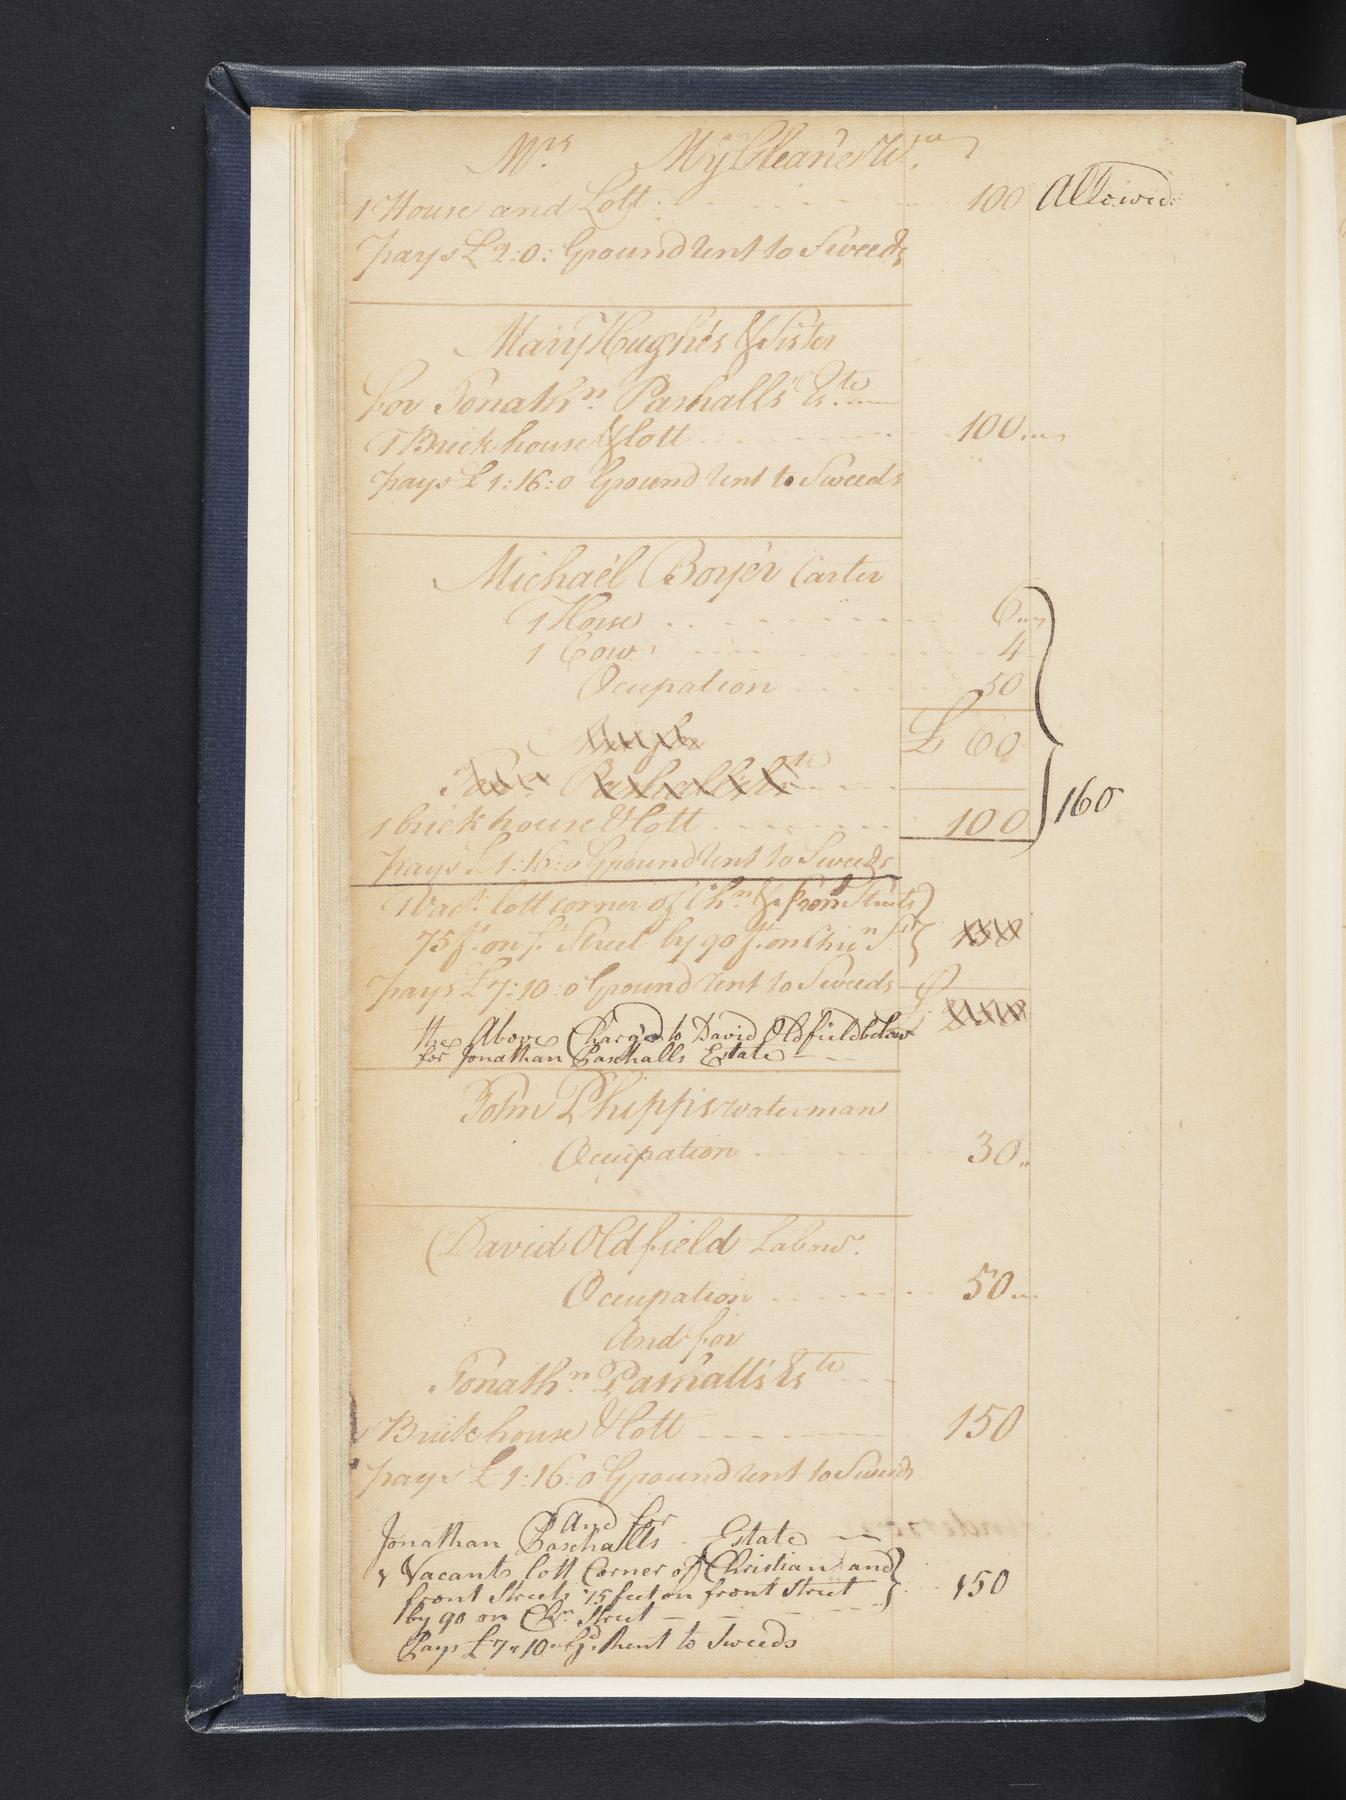 Mrs McCleane Wid
1 House and Lott 100 Allowed
pays £ 2:0: Ground rent to Sweeds
Mary Hughes & Sister
for Jonathn Pashalls Este
1 Brick house & lott 100
pays £ 1:16:0 Ground rent to Sweeds
Michael Boyer Carter
1 Horse 6
1 Cow 4
Ocupation 50
£ 60
1 brick house & lott 100 160
pays £ 1:16:0 Ground rent to Sweeds
1 Vact lott corner of Chn & front Streets
75 ft on ft Street by 90 ft on Chrin St
pays £ 7:10:0 Ground rent to Sweeds
the Above Charg'd to David Oldfield below
for Jonathan Paschalls Estate
John Phipps waterman
Occupation 30
David Oldfield Labour
Occupation 50
And for
Jonathn Pashalls Este
Brick house & lott 150
pays £ 1:16:0 Ground rent to Sweeds
And for
Jonathan Paschalls Estate
1 Vacant lott Corner of Christian and
front Streets 75 feet on front Street 150
by 90 on Chn Street
Pays £ 7 " 10 " Gd Rent to Sweeds